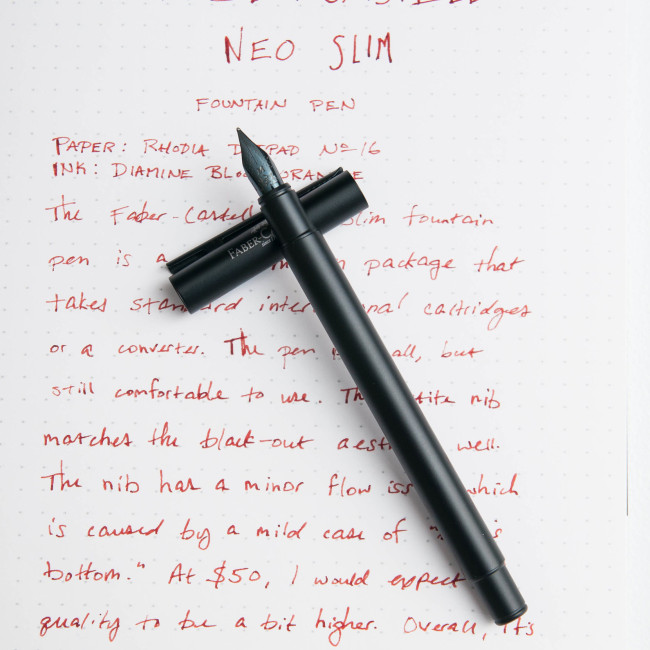 NEO SLIM
FOUNTAIN PEN
PAPER: RHODIA PAD Nº 16
INK: DIAMINE
The Faber-Castell Slim fountain
pen is a package that
takes cartridges
or a converter. The pen but
still comfortable to use. nib
matches the black-out well.
The nib has a minor flow which
is caused by a mild case of
bottom." At $50, I would expect
quality to be a bit higher. Overall, it's
FABER-C